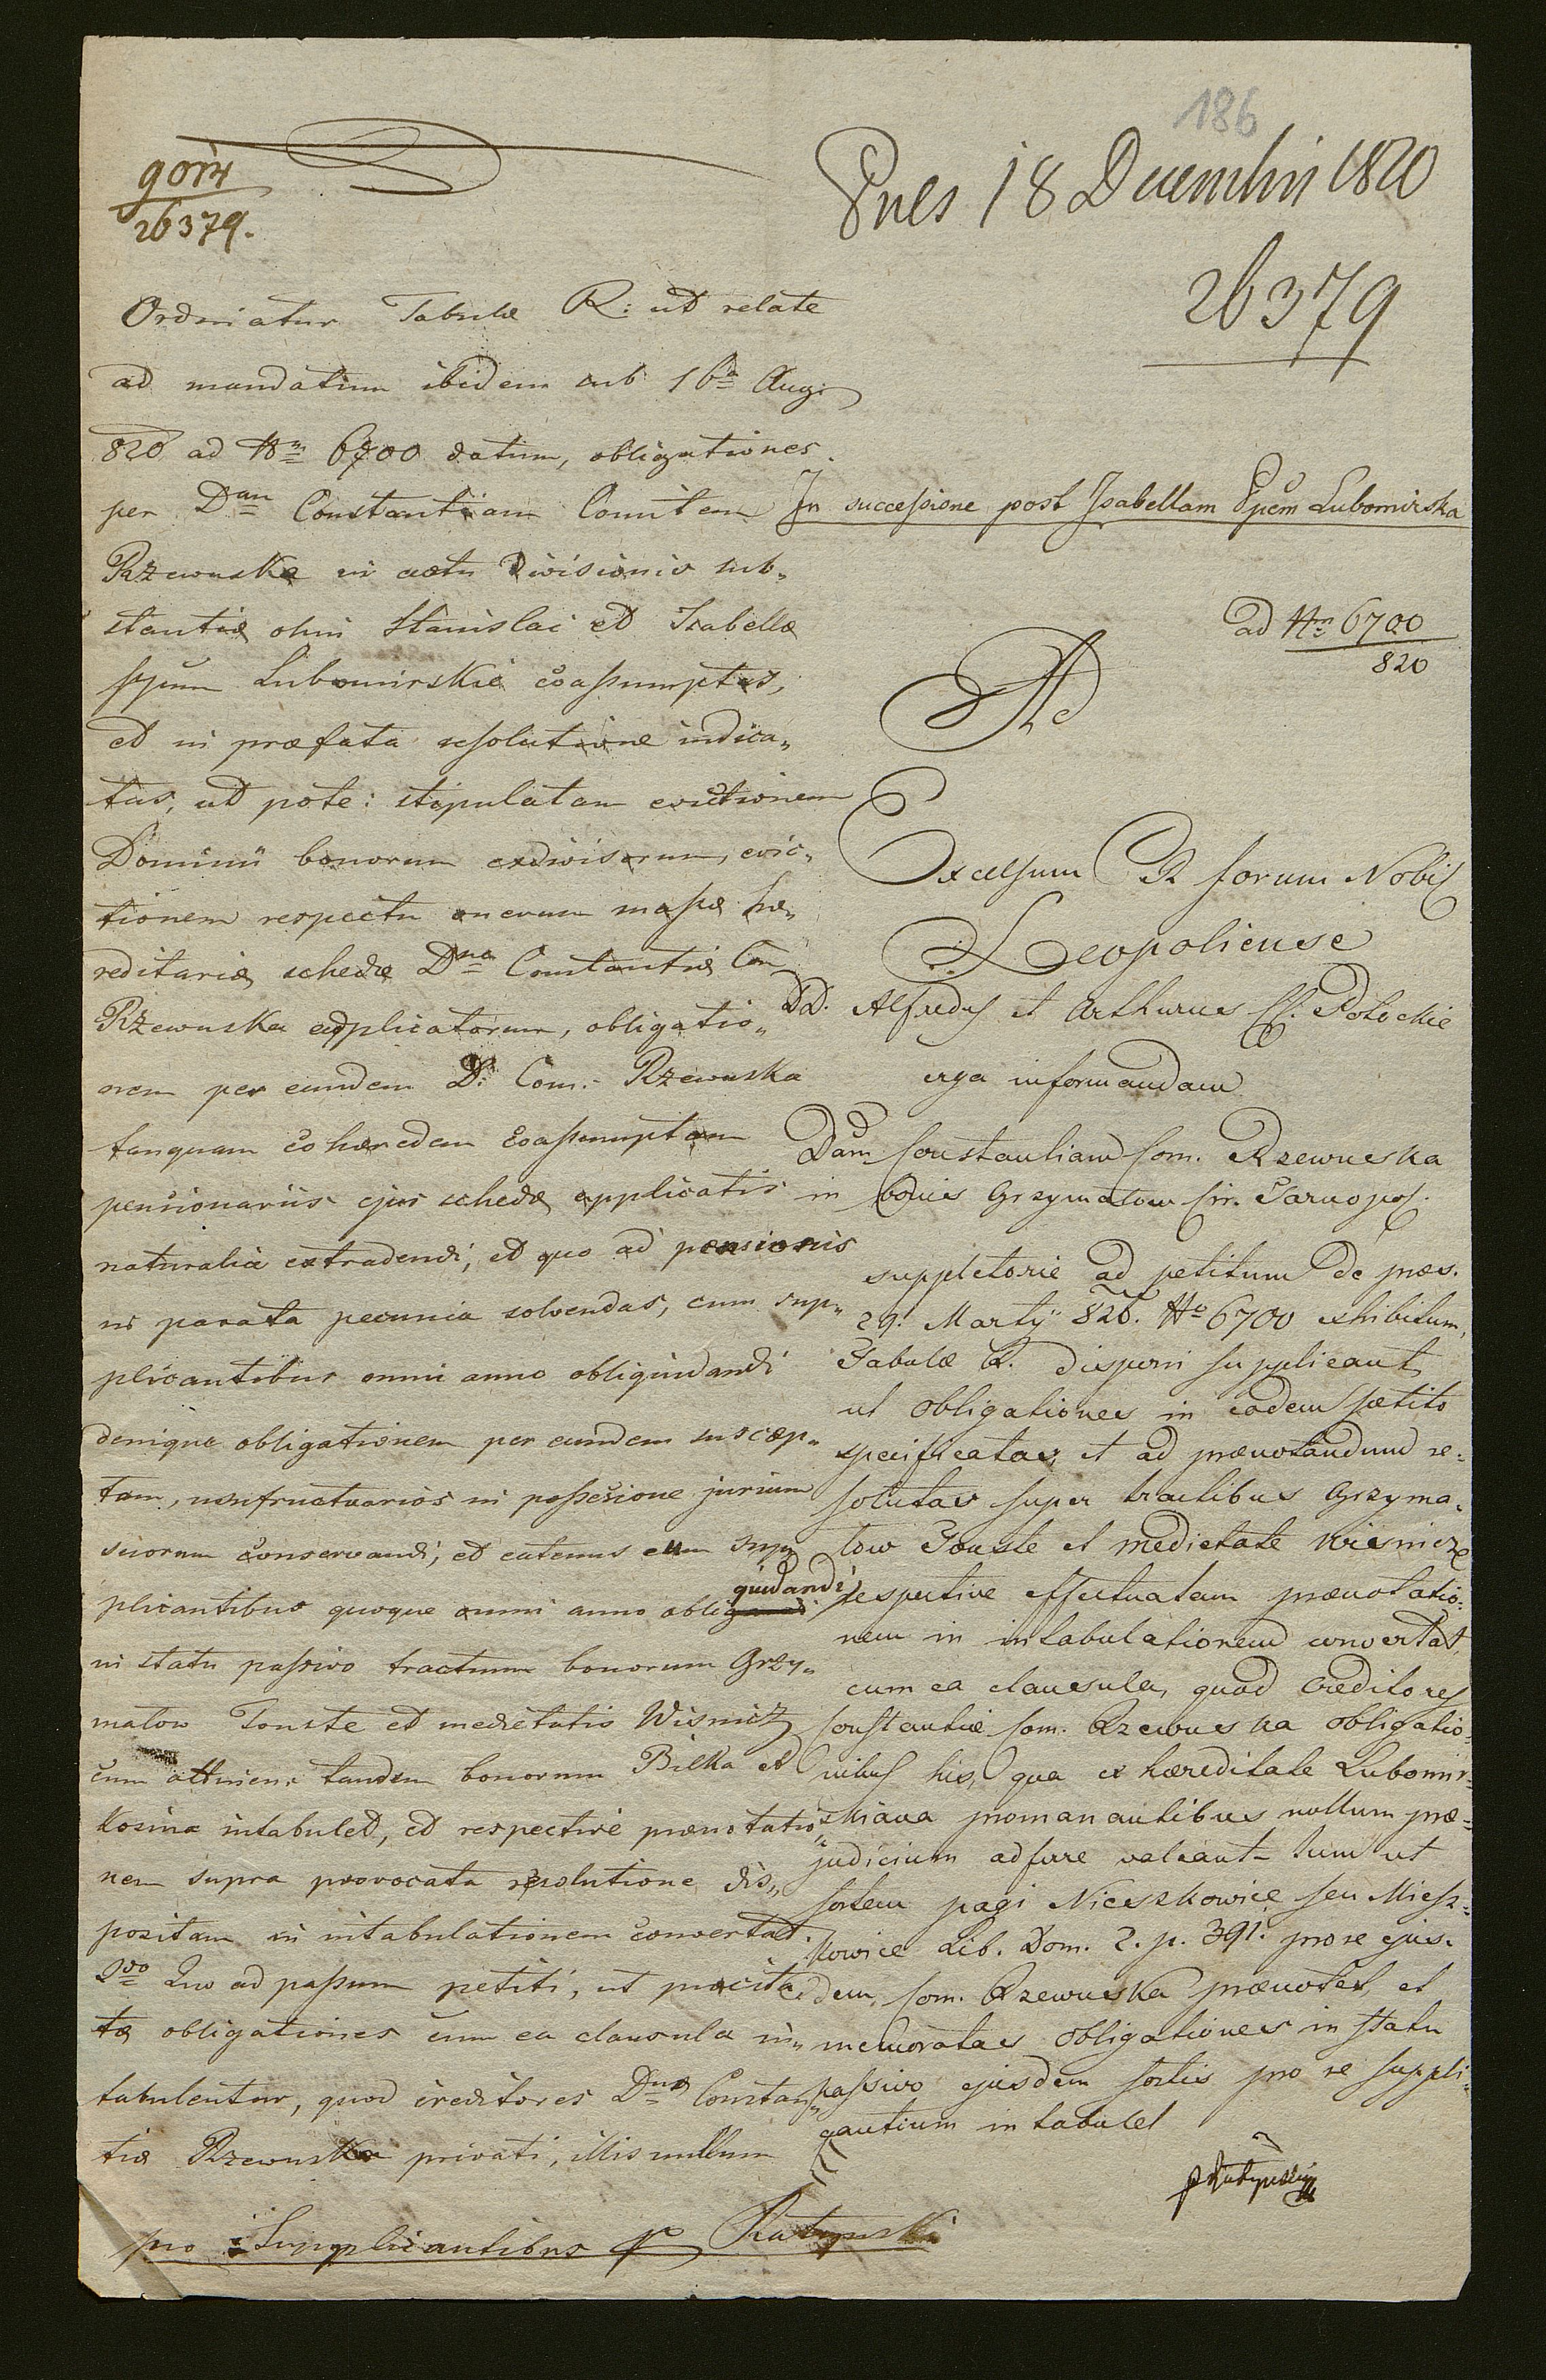 186
Pnes 18 Decembri 1820
26379
gorz
26379.
Ordniatur Tabulæ R: ut relate
ad mandatum ibidem sub 16ta Aug:
820 ad Nm 6700 datum, obligationes
per Dam Constantiam Comitem
Rzewuska in actu Divisionis sub„
stantiæ olim Stanislai et Isabellæ
ppum Lubomirskie coassumptas,
et in præfata resolutione indica„
tas, ut pote: stipulatam evictionem
Dominii bonorum exdivisorum, evic„
tionem respectu onerum massæ hæ„
reditariæ schedæ Dnæ Constantiæ Com
Rzewuska applicatorum, obligatio„
nem per eundem D: Com: Rzewuska
tanquam cohæredem coassumptam
pensionariis ejus schedæ applicatis
naturalia extradendi, et quo ad pensionis
in parata pecunia solvendas, cum sup„
plicantibus omni anno obliquidandi
denique obligationem per eundem suscep„
tam, usufructuarios in possessione jurium
suorum conservandi, et eatenus cum sup
plicantibus quoque omni anno obliquidandi
in statu passivo tractuum bonorum Grzy„
malow Touste et medietatis Wisnicz
cum attinen: tandem bonorum Bilka et
Kosina intabulet, et respective prænotatio„
nem supra provocata resolutione dis„
positam in intabulationem convertat.
2do Quo ad passum petiti, ut præcita„
tæ obligationes cum ea clausula in„
tabulentur, quod creditores Dnæ Constan„
tiæ Rzewuska privati, illis nullum
pro Supplicantibus Rutynski
In successione post Isabellam Ppem Lubomirska
ad Nm 6700
820
Ad
Excelsum CR forum Nobil
Leopoliense
DD. Alfredus et Arthurus CC. Potockie
erga informandam
Dam Constantiam Com. Rzewuska
in bonis Grzymalow Cir. Tarnopol.
suppletorie ad petitum de præs.
29. Martÿ 820. No 6700 exhibitum,
Tabulæ R. disponi supplicant
ut obligationes in eodem petito
specificatas, et ad prænotandum re„
solutas super tractibus Grzyma„
low Touste et medietate Wisnicze
respective effectuatam prænotatio„
nem in intabulationem convertat,
cum ea clausula, quod Creditores
Constantiæ Com. Rzewuska obligatio„
nibus his, qua ex hæreditate Lubomir„
skiana promanantibus nullum præ„
judicium adfere valeant – tum ut
sortem pagi Nieszkowice seu Miesz„
kowice Lib. Dom. 2. p. 391. pro re ejus„
dem, Com. Rzewuska prænotet, et
memoratas obligationes in statu
passivo ejusdem sortis pro re suppli„
cantium intabulet
Rutynski